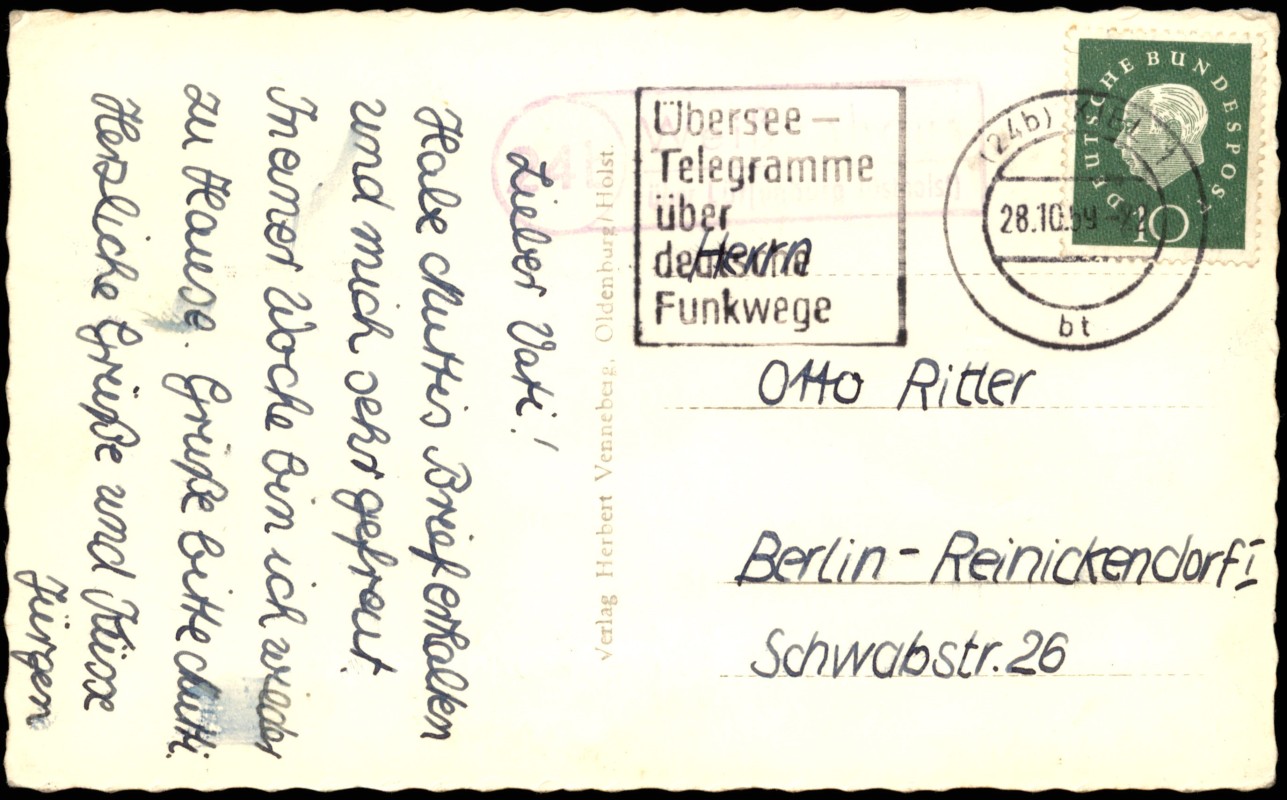 Lieber Vati!
Habe Muttis Brief erhalten
und mich sehr gefreut.
In einer Woche bin ich wieder
zu Hause. Grüße bitte Mutti.
Herzliche Grüße und Küsse
Jürgen
Verlag Herbert Venneberg, Oldenburg/Holst.
24b
Übersee-
Telegramme
über
deutsche
Funkwege
(24b)
28.10.59
bt
DEUTSCHE BUNDESPOST
10
Herrn
Otto Ritter
Berlin-Reinickendorf 1
Schwabstr. 26